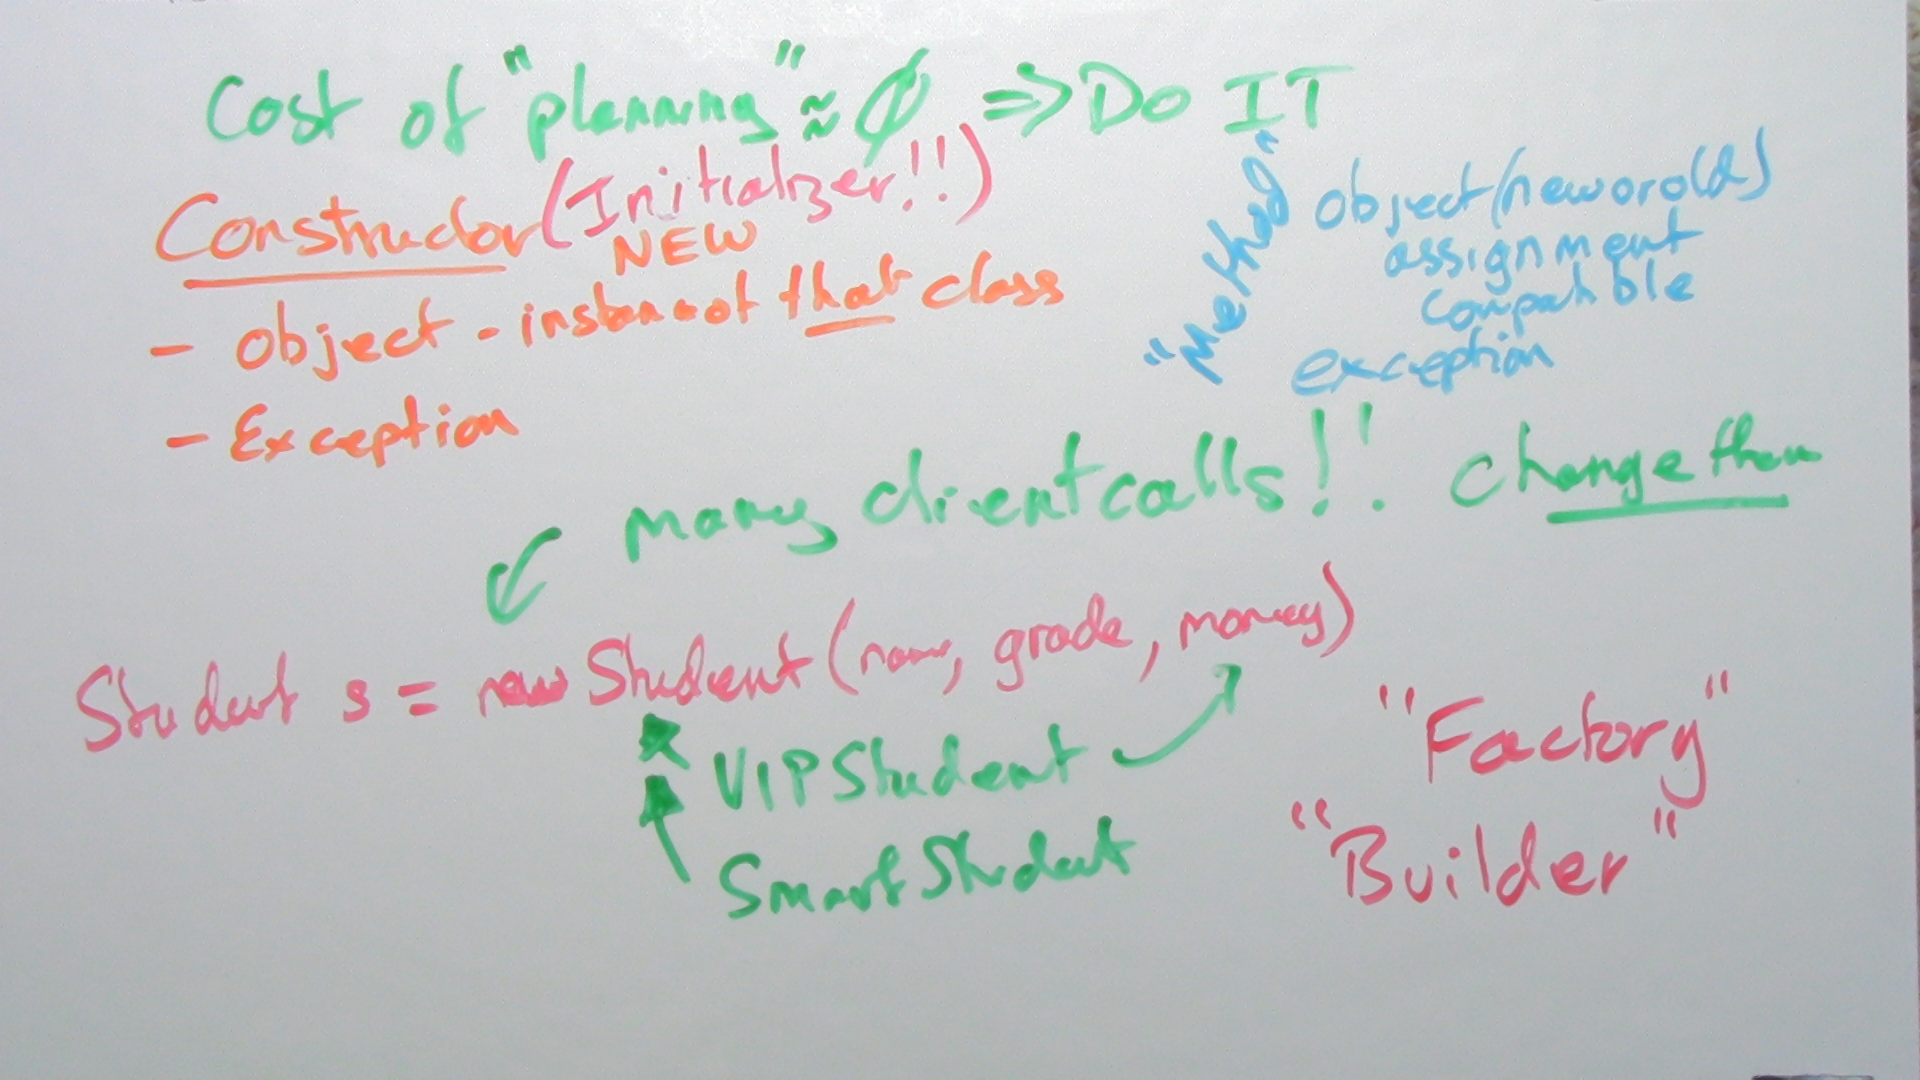 Cost of "planning" ≈ Ø ⇒ Do IT
Constructor (Initializer!!)
NEW
- Object - instance of that class
- Exception
"Method"
object (new or old)
assignment
compatible
exception
many client calls!! change them
Student s = new Student (name, grade, money)
VIPStudent
SmartStudent
"Factory"
"Builder"